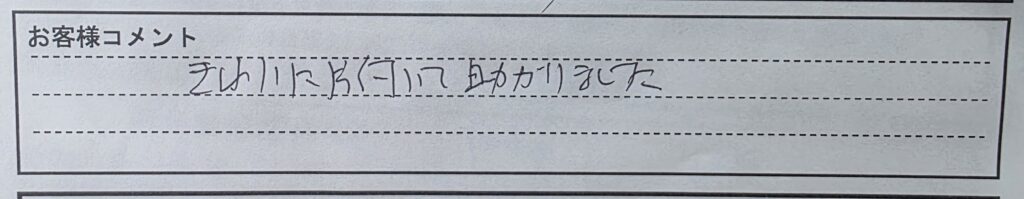 お客様コメント
きれいに片付いて助かりました